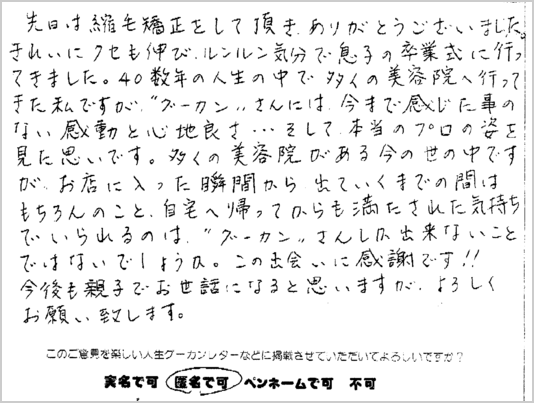 先日は縮毛矯正をして頂き、ありがとうございました。
きれいにクセも伸び、ルンルン気分で息子の卒業式に行っ
てきました。40数年の人生の中で多くの美容院へ行って
きた私ですが、"グーカン"さんには、今まで感じた事の
ない感動と心地良さ…そして、本当のプロの姿を
見た思いです。多くの美容院がある今の世の中です
が、お店に入った瞬間から、出ていくまでの間は
もちろんのこと、自宅へ帰ってからも満たされた気持ち
でいられるのは、"グーカン"さんしか出来ないこと
ではないでしょうか。この出会いに感謝です!!
今後も親子でお世話になると思いますが、よろしく
お願い致します。
このご意見を楽しい人生グーカンレターなどに掲載させていただいてよろしいですか?
実名で可 匿名で可 ペンネームで可 不可